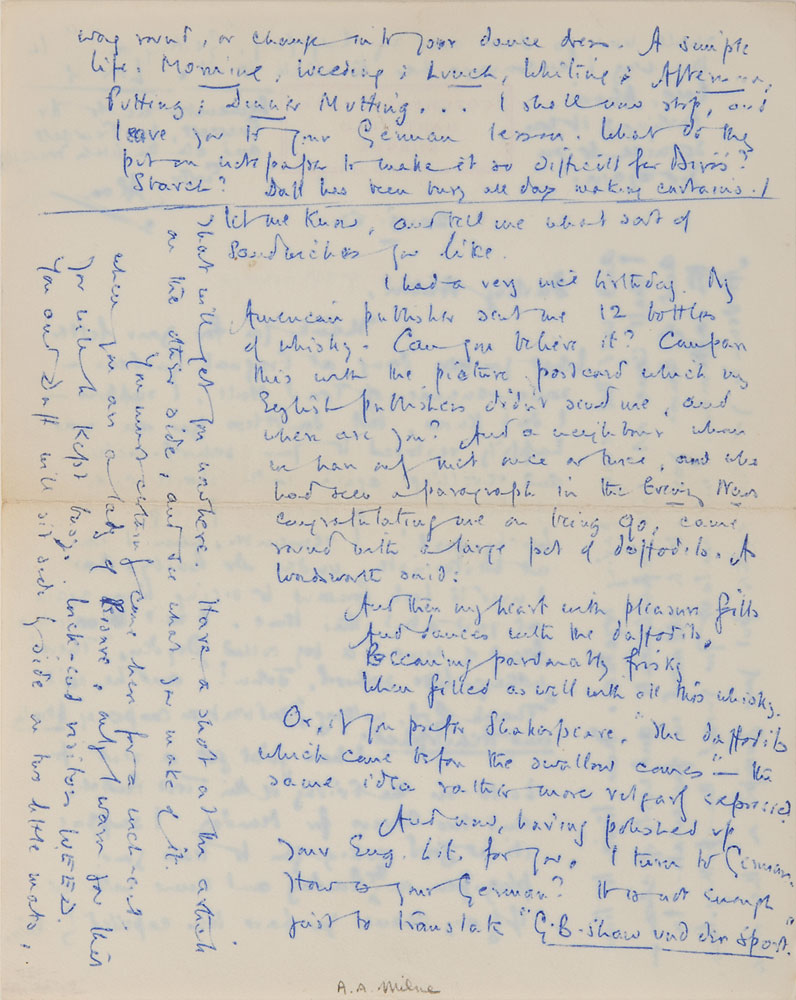 way round, or change into your dance dress. A simple
life: Morning, Weeding; Lunch, Whiting; Afternoon,
Putting; Dinner Mutting... I shall now stop, and
leave you to your German lesson. What do they
put on notepaper to make it so difficult for Biros?
Starch? Daff has been busy all day making curtains.
let me know, and tell me what sort of
sandwiches you like.
I had a very nice birthday. My
American publisher sent me 12 bottles
of whisky. Can you believe it? Compare
this with the picture postcard which my
English publishers didn't send me, and
where are you? And a neighbour whom
we have only met once or twice, and who
had seen a paragraph in the Evening News
congratulating me on being 90, came
round with a large pot of daffodils. As
Wordsworth said:
And then my heart with pleasure fills
And dances with the daffodils,
Becoming pardonably frisky
When filled as well with all this whisky.
Or, if you prefer Shakespeare, "The daffodils
which came before the swallow comes" — the
same idea rather more vulgarly expressed.
And now, having polished up
your Eng. Lit. for you, I turn to German.
How is your German? It is not enough
just to translate "G.B. Shaw und der Sport."
that will get you nowhere. Have a shot at the article
on the other side, and see what you make of it.
You must certainly come here for a week-end
when you are a lady of leisure; only I warn you this
You will be kept busy: week-end visitors WEED.
You and Daff will sit side by side on two little mats,
A.A. Milne